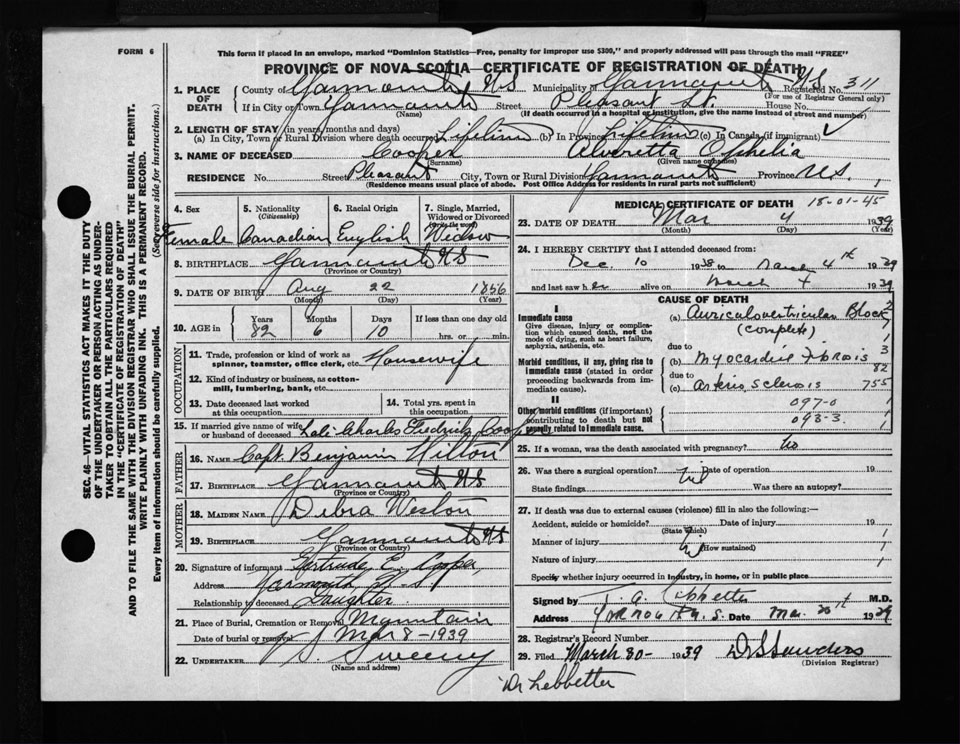 FORM 6
This form if placed in an envelope, marked "Dominion Statistics—Free, penalty for improper use $300," and properly addressed will pass through the mail "FREE"
PROVINCE OF NOVA SCOTIA—CERTIFICATE OF REGISTRATION OF DEATH
1. PLACE OF DEATH
County of Yarmouth NS Municipality of Yarmouth NS Registered No. 311
(For use of Registrar General only)
If in City or Town Yarmouth Street Pleasant St. House No.
(Name) (If death occurred in a hospital or institution, give the name instead of street and number)
2. LENGTH OF STAY (in years, months and days)
(a) In City, Town or Rural Division where death occurred Lifetime (b) In Province Lifetime (c) In Canada (if immigrant) ✓
3. NAME OF DECEASED Cooper Alveretta Ophelia
(Surname) (Given name or names)
RESIDENCE No. Street Pleasant City, Town or Rural Division Yarmouth Province NS. 1
(Residence means usual place of abode. Post Office Address for residents in rural parts not sufficient)
4. Sex 5. Nationality (Citizenship) 6. Racial Origin 7. Single, Married, Widowed or Divorced (Write the word)
Female Canadian English Widow
8. BIRTHPLACE Yarmouth NS
(Province or Country)
9. DATE OF BIRTH Aug 22 1856
(Month) (Day) (Year)
10. AGE in Years Months Days If less than one day old
82 6 10 hrs. or min.
OCCUPATION
11. Trade, profession or kind of work as spinner, teamster, office clerk, etc. Housewife
12. Kind of industry or business, as cotton-mill, lumbering, bank, etc.
13. Date deceased last worked at this occupation
14. Total yrs. spent in this occupation
15. If married give name of wife or husband of deceased Late Charles Fredrick Cooper
FATHER
16. NAME Capt. Benjamin Hilton
17. BIRTHPLACE Yarmouth NS
(Province or Country)
MOTHER
18. MAIDEN NAME Debra Weston
19. BIRTHPLACE Yarmouth NS
(Province or Country)
20. Signature of informant Gertrude E. Cooper,
Address Yarmouth N.S.
Relationship to deceased Daughter
21. Place of Burial, Cremation or Removal Mountain
Date of burial or removal Mar 8-1939
22. UNDERTAKER Sweeny
(Name and address)
MEDICAL CERTIFICATE OF DEATH 18-01-45
23. DATE OF DEATH Mar 4 1939
(Month) (Day) (Year)
24. I HEREBY CERTIFY that I attended deceased from:
Dec. 10 1938 to March 4th 1939
and last saw her alive on March 4 1939
CAUSE OF DEATH
I
Immediate cause
Give disease, injury or complication which caused death, not the mode of dying, such as heart failure, asphyxia, asthenia, etc.
(a) Auriculoventricular Block
(complete)
due to
Morbid conditions, if any, giving rise to immediate cause (stated in order proceeding backwards from immediate cause).
(b) Myocardial Fibrosis
due to 82
(c) Arterio sclerosis 755
II
Other morbid conditions (if important) contributing to death but not causally related to immediate cause.
097-0 1
093-3. 1
25. If a woman, was the death associated with pregnancy? No
26. Was there a surgical operation? Nil Date of operation 19
State findings Was there an autopsy?
27. If death was due to external causes (violence) fill in also the following:—
Accident, suicide or homicide? Date of injury 19
(State which)
Manner of injury Nil
(How sustained)
Nature of injury
Specify whether injury occurred in industry, in home, or in public place
Signed by M.D.
Address Yarmouth N.S. Date Mar. 20th 1939
28. Registrar's Record Number
29. Filed March 30- 1939 D S Saunders
(Division Registrar)
SEC. 46—VITAL STATISTICS ACT MAKES IT THE DUTY
OF THE UNDERTAKER OR PERSON ACTING AS UNDER-
TAKER TO OBTAIN ALL THE PARTICULARS REQUIRED
IN THE "CERTIFICATE OF REGISTRATION OF DEATH"
AND TO FILE THE SAME WITH THE DIVISION REGISTRAR WHO SHALL ISSUE THE BURIAL PERMIT.
WRITE PLAINLY WITH UNFADING INK. THIS IS A PERMANENT RECORD.
Every item of information should be carefully supplied. (See reverse side for instructions.)